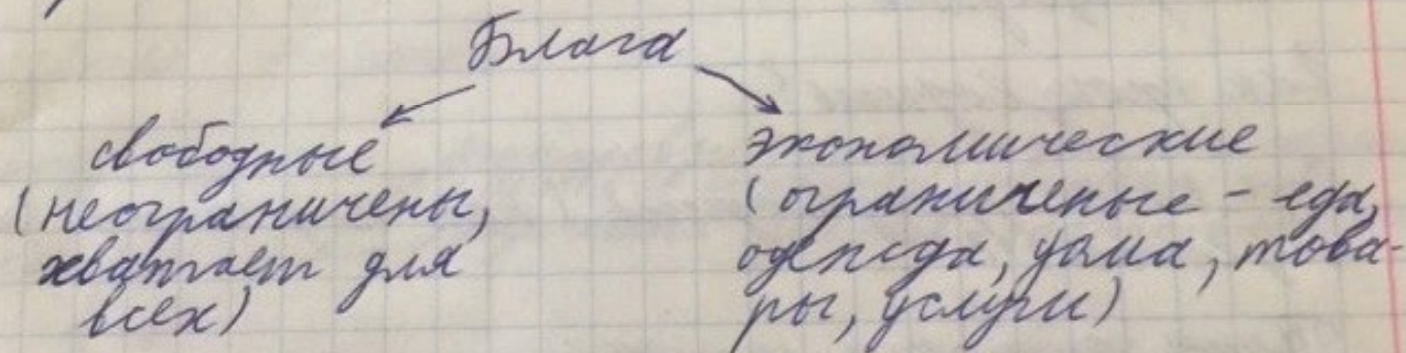 Блага
свободные
(неограничены,
хватает для
всех)
экономические
(ограниченые - еда,
одежда, дома, това-
ры, услуги)